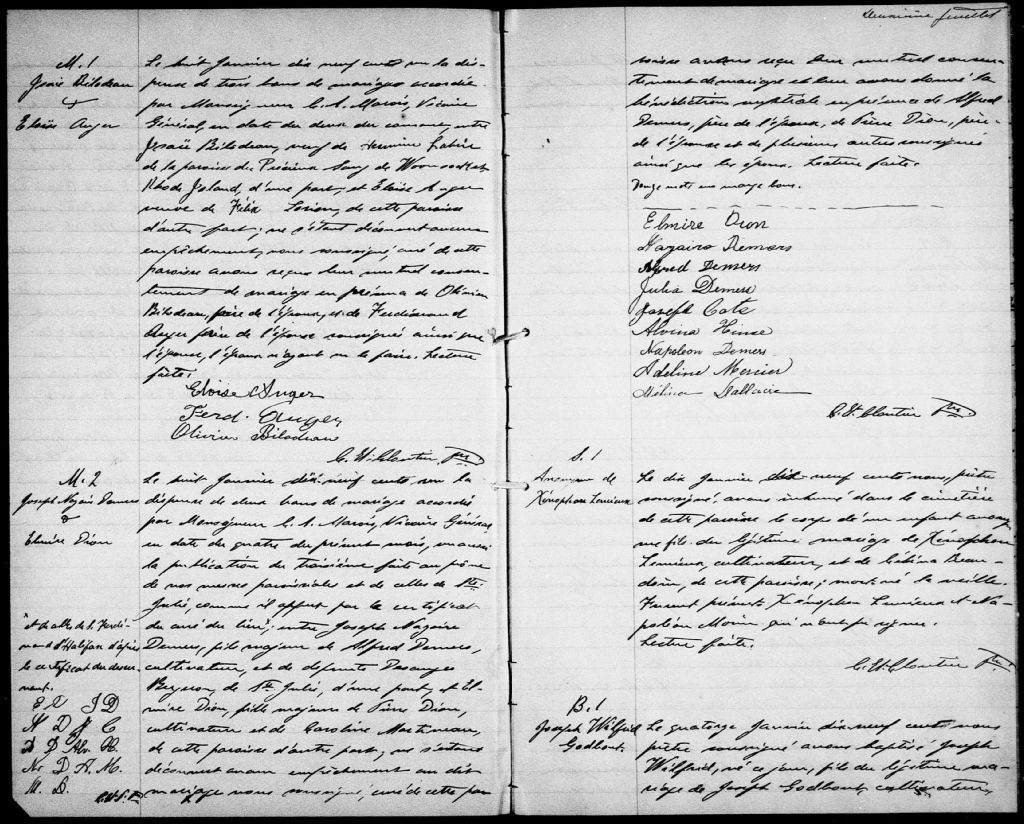 M. 1
Jesaië Bilodeau
&
Eloïse Auger
Le huit Janvier dix neuf cents vu la dis-
pense de trois bans de mariage accordée
par Monseigneur C. A. Marois, Vicaire
Général, en date du deux du courant, entre
Jesaïe Bilodeau, veuf de
de la paroisse du Précieux Sang de Woonsocket
Rhode Island, d'une part, et Eloïse Auger
veuve de Félix de cette paroisse
d'autre part; ne s'étant découvert aucun
empêchement, nous soussigné, curé de cette
paroisse avons reçu leur mutuel consen-
tement de mariage en présence de Olivier
Bilodeau, père de l'époux, et de Ferdinand
Auger père de l'épouse soussignés ainsi que
l'épouse, l'époux n'ayant su le faire. Lecture
faite.
Eloïse Auger
Ferd. Auger
Olivier Bilodeau
C. H. Cloutier Ptre
M. 2
Joseph Nazaire Demers
&
Elmire Dion
et de celles de S. Ferdi-
nand d'Halifax d'après
le certificat du desser-
vant.
E D J D
N D J C
A D Alv. H.
Np D A. M.
M. D.
Le huit Janvier dix-neuf cents vu la
dispense de deux bans de mariage accordée
par Monseigneur C. A. Marois, Vicaire Général,
en date du quatre du présent mois, vu aussi
la publication du troisième faite au prône
de nos messes paroissiales et de celles de Ste
Julie, comme il appert par le certificat
du curé du lieu, entre Joseph Nazaire
Demers, fils majeur de Alfred Demers,
cultivateur, et de défunte Desanges
Bergeron, de Ste Julie, d'une part, et El-
mire Dion, fille majeure de Pierre Dion,
cultivateur et de Caroline Martineau,
de cette paroisse d'autre part; ne s'étant
découvert aucun empêchement au dit
mariage nous soussigné, curé de cette pa-
feuillet
roisse avons reçu leur mutuel consen-
tement de mariage et leur avons donné la
bénédiction nuptiale en présence de Alfred
Demers, père de l'époux, de Pierre Dion, père
de l'épouse et de plusieurs autres soussignés
ainsi que les époux. Lecture faite.
Douze mots en marge bons.
Elmire Dion
Nazaire Demers
Alfred Demers
Julia Demers
Joseph Cote
Alvina Hinse
Napoléon Demers
Adeline Mercier
C. H. Cloutier Ptre
S. 1
Anonyme de
Xénophon Lemieux
Le dix Janvier dix-neuf cents nous, prêtre
soussigné, avons inhumé dans le cimetière
de cette paroisse le corps d'un enfant anony-
me fils du légitime mariage de Xénophon
Lemieux, cultivateur, et de Beau-
doin, de cette paroisse; mort né la veille.
Furent présents Xénophon Lemieux et Na-
poléon Morin qui n'ont pu signer.
Lecture faite.
C. H. Cloutier Ptre
B. 1
Joseph Wilfrid
Godbout
Le quatorze Janvier dix neuf cents nous
prêtre soussigné avons baptisé Joseph
Wilfrid, né ce jour, fils du légitime ma-
riage de Joseph Godbout, cultivateur,